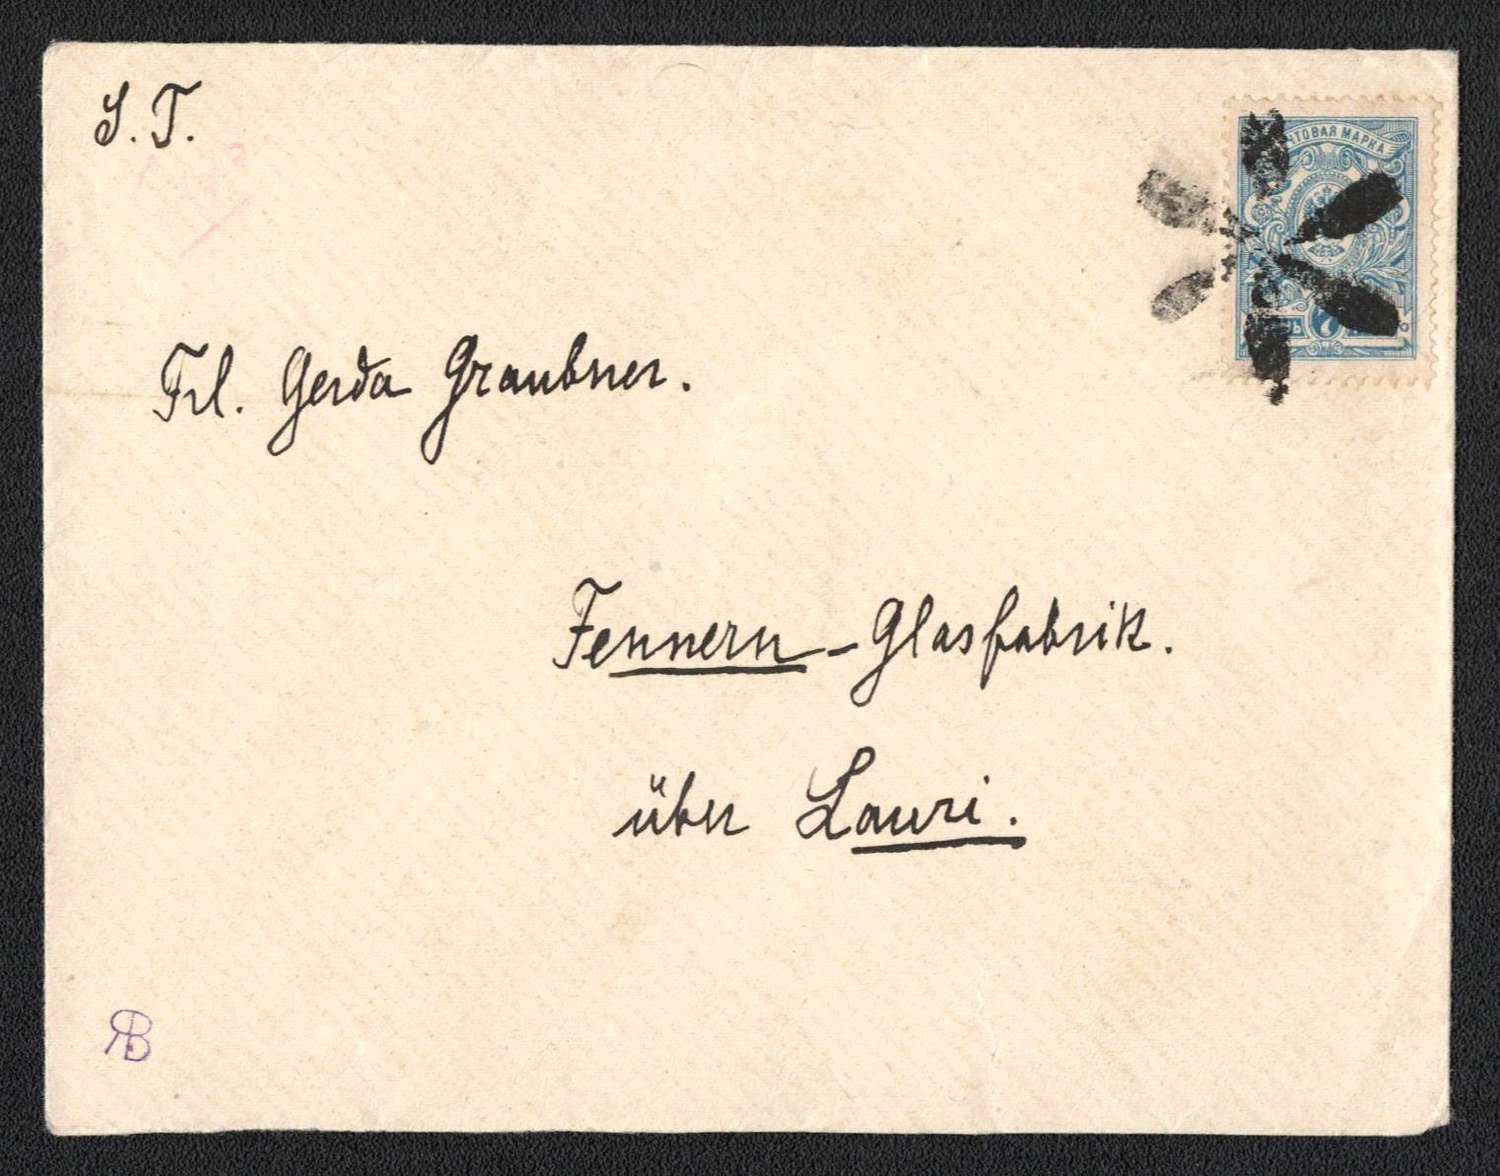 S. T.
ЧТОВАЯ МАРКА
7
Frl. Gerda Graubner.
Fennern-Glasfabrik.
über Lauri.